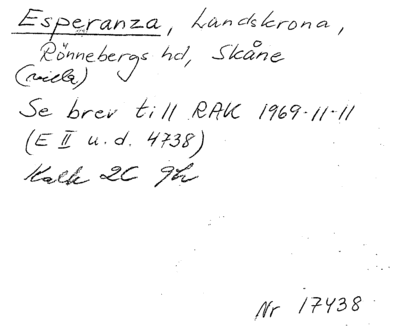 Esperanza, Landskrona,
Rönnebergs hd, Skåne
(villa)
Se brev till RAK 1969-11-11
(E II u.d. 4738)
Kalk 2C 9h
Nr 17438